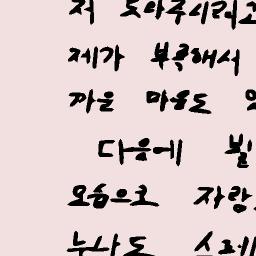 저 도와주시려고
제가 부족해서
까운 마음도
다음에
모습으로 자랑
누나도